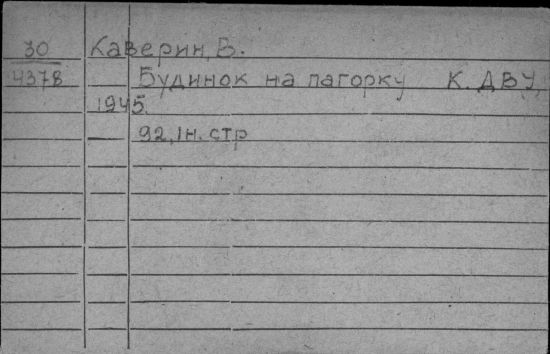 30 Каверин, В.
4378 Будинок на пагорку К. ДВУ,
1945.
— 92, 1 н. стр